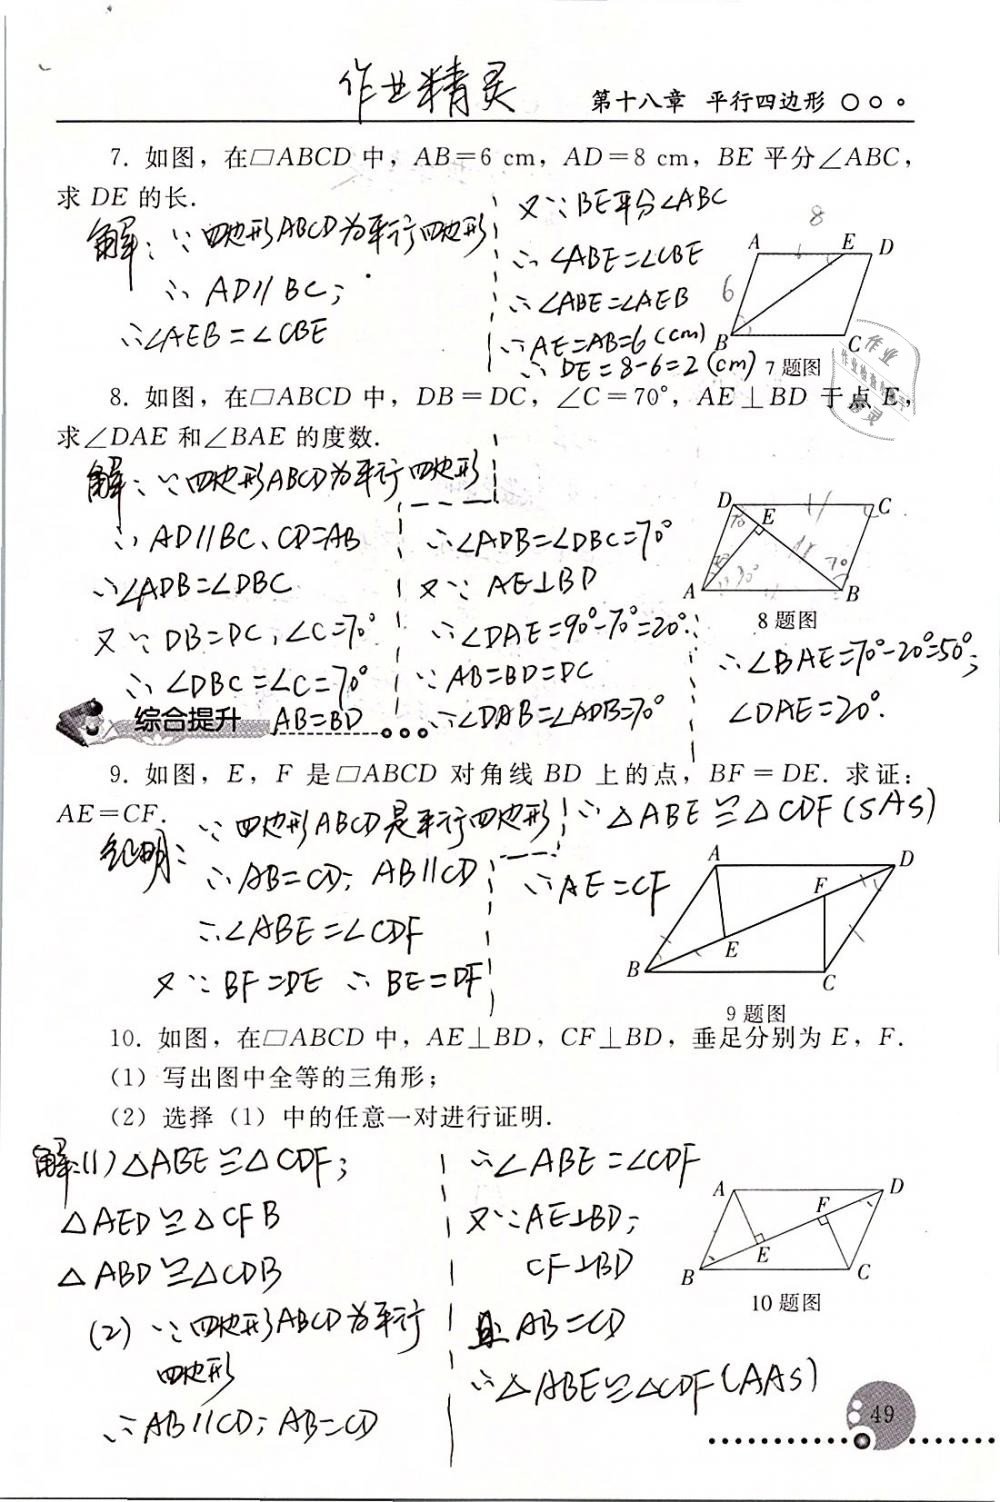 作业精灵
第十八章 平行四边形
7. 如图，在▱ABCD 中，AB＝6 cm，AD＝8 cm，BE 平分∠ABC，
求 DE 的长.
解：∵ 四边形ABCD为平行四边形
∴ AD∥BC；
∴∠AEB＝∠CBE
又∵BE平分∠ABC
∴ ∠ABE＝∠CBE
∴ ∠ABE＝∠AEB
∴ AE＝AB＝6 (cm)
∴ DE＝8-6＝2 (cm)
8
A E D
6
B C
7 题图
作业
精灵
8. 如图，在▱ABCD 中，DB＝DC，∠C＝70°，AE⊥BD 于点 E，
求∠DAE 和∠BAE 的度数.
解：∵四边形ABCD为平行四边形
∴ AD∥BC、CD＝AB
∴∠ADB＝∠DBC
又∵ DB＝DC，∠C＝70°
∴ ∠DBC＝∠C＝70°
AB＝BD
∴∠ADB＝∠DBC＝70°
又∵ AE⊥BD
∴∠DAE＝90°-70°＝20°
∵ AB＝BD＝DC
∴∠DAB＝∠ADB＝70°
∴∠BAE＝70°-20°＝50°；
∠DAE＝20°.
D E C
70
70
A B
8 题图
综合提升
9. 如图，E，F 是▱ABCD 对角线 BD 上的点，BF＝DE. 求证：
AE＝CF.
证明：
∵ 四边形ABCD是平行四边形
∴ AB＝CD；AB∥CD
∴∠ABE＝∠CDF
又∵BF＝DE ∴ BE＝DF
∴△ABE≌△CDF(SAS)
∴AE＝CF
A D
F
E
B C
9 题图
10. 如图，在▱ABCD 中，AE⊥BD，CF⊥BD，垂足分别为 E，F.
(1) 写出图中全等的三角形；
(2) 选择（1）中的任意一对进行证明.
解：(1)△ABE≌△CDF；
△AED≌△CFB
△ABD≌△CDB
(2) ∵四边形ABCD为平行
四边形
∴AB∥CD；AB＝CD
∴∠ABE＝∠CDF
又∵AE⊥BD；
CF⊥BD
且 AB＝CD
∴△ABE≌△CDF(AAS)
A D
F
E
B C
10 题图
49